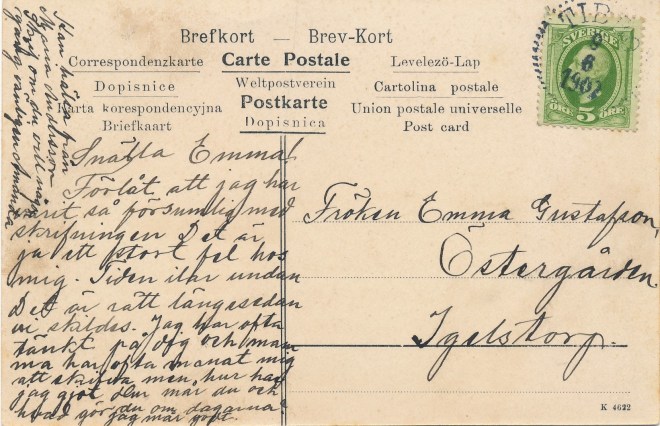 Brefkort — Brev-Kort
Correspondenzkarte Carte Postale Levelezö-Lap
Dopisnice Weltpostverein Cartolina postale
Karta korespondencyjna Postkarte Union postale universelle
Briefkaart Dopisnica Post card
SVERIGE
5
ÖRE ÖRE
TIB
9
6
1907
Snälla Emma!
Förlåt att jag har
varit så försumlig med
skrifningen Det är
ju ett stort fel hos
mig. Tiden ilar undan
Det är rätt längesedan
vi skildes. Jag har ofta
tänkt på dig och mam
ma har ofta manat mig
att skrifva men hur har
jag gjot. Hur mår du och
hvad gör du om dagarna
jag mår godt.
Kan hälsa från
Maria Andersson
Skrif om du vill några
rader vänligen Amanda
Fröken Emma Gustafson,
Östergården
Igelstorp.
K 4622